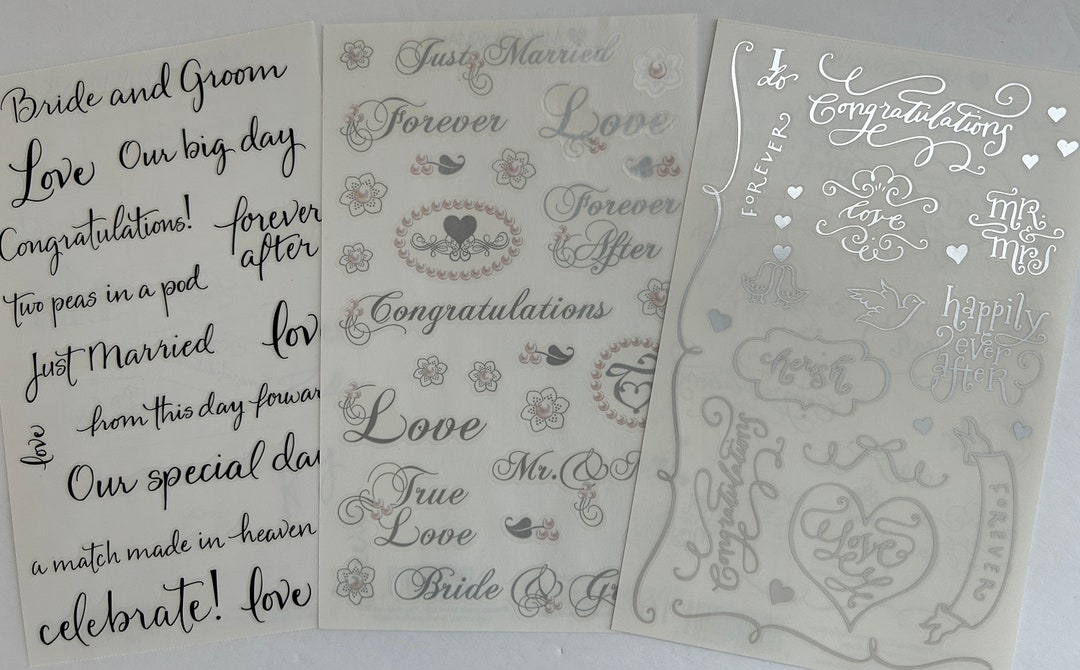 Bride and Groom
Love Our big day
Congratulations! forever
after
two peas in a pod
Just Married
from this day
love
Our special
a match made in heaven
celebrate! love
Just Married
Forever Love
Forever
After
Congratulations
Love
Mr. &
True
Love
Bride &
I
do
FOREVER
Congratulations
love
mr.
&
mrs
happily
ever
after
cherish
Congratulations
Love
FOREVER